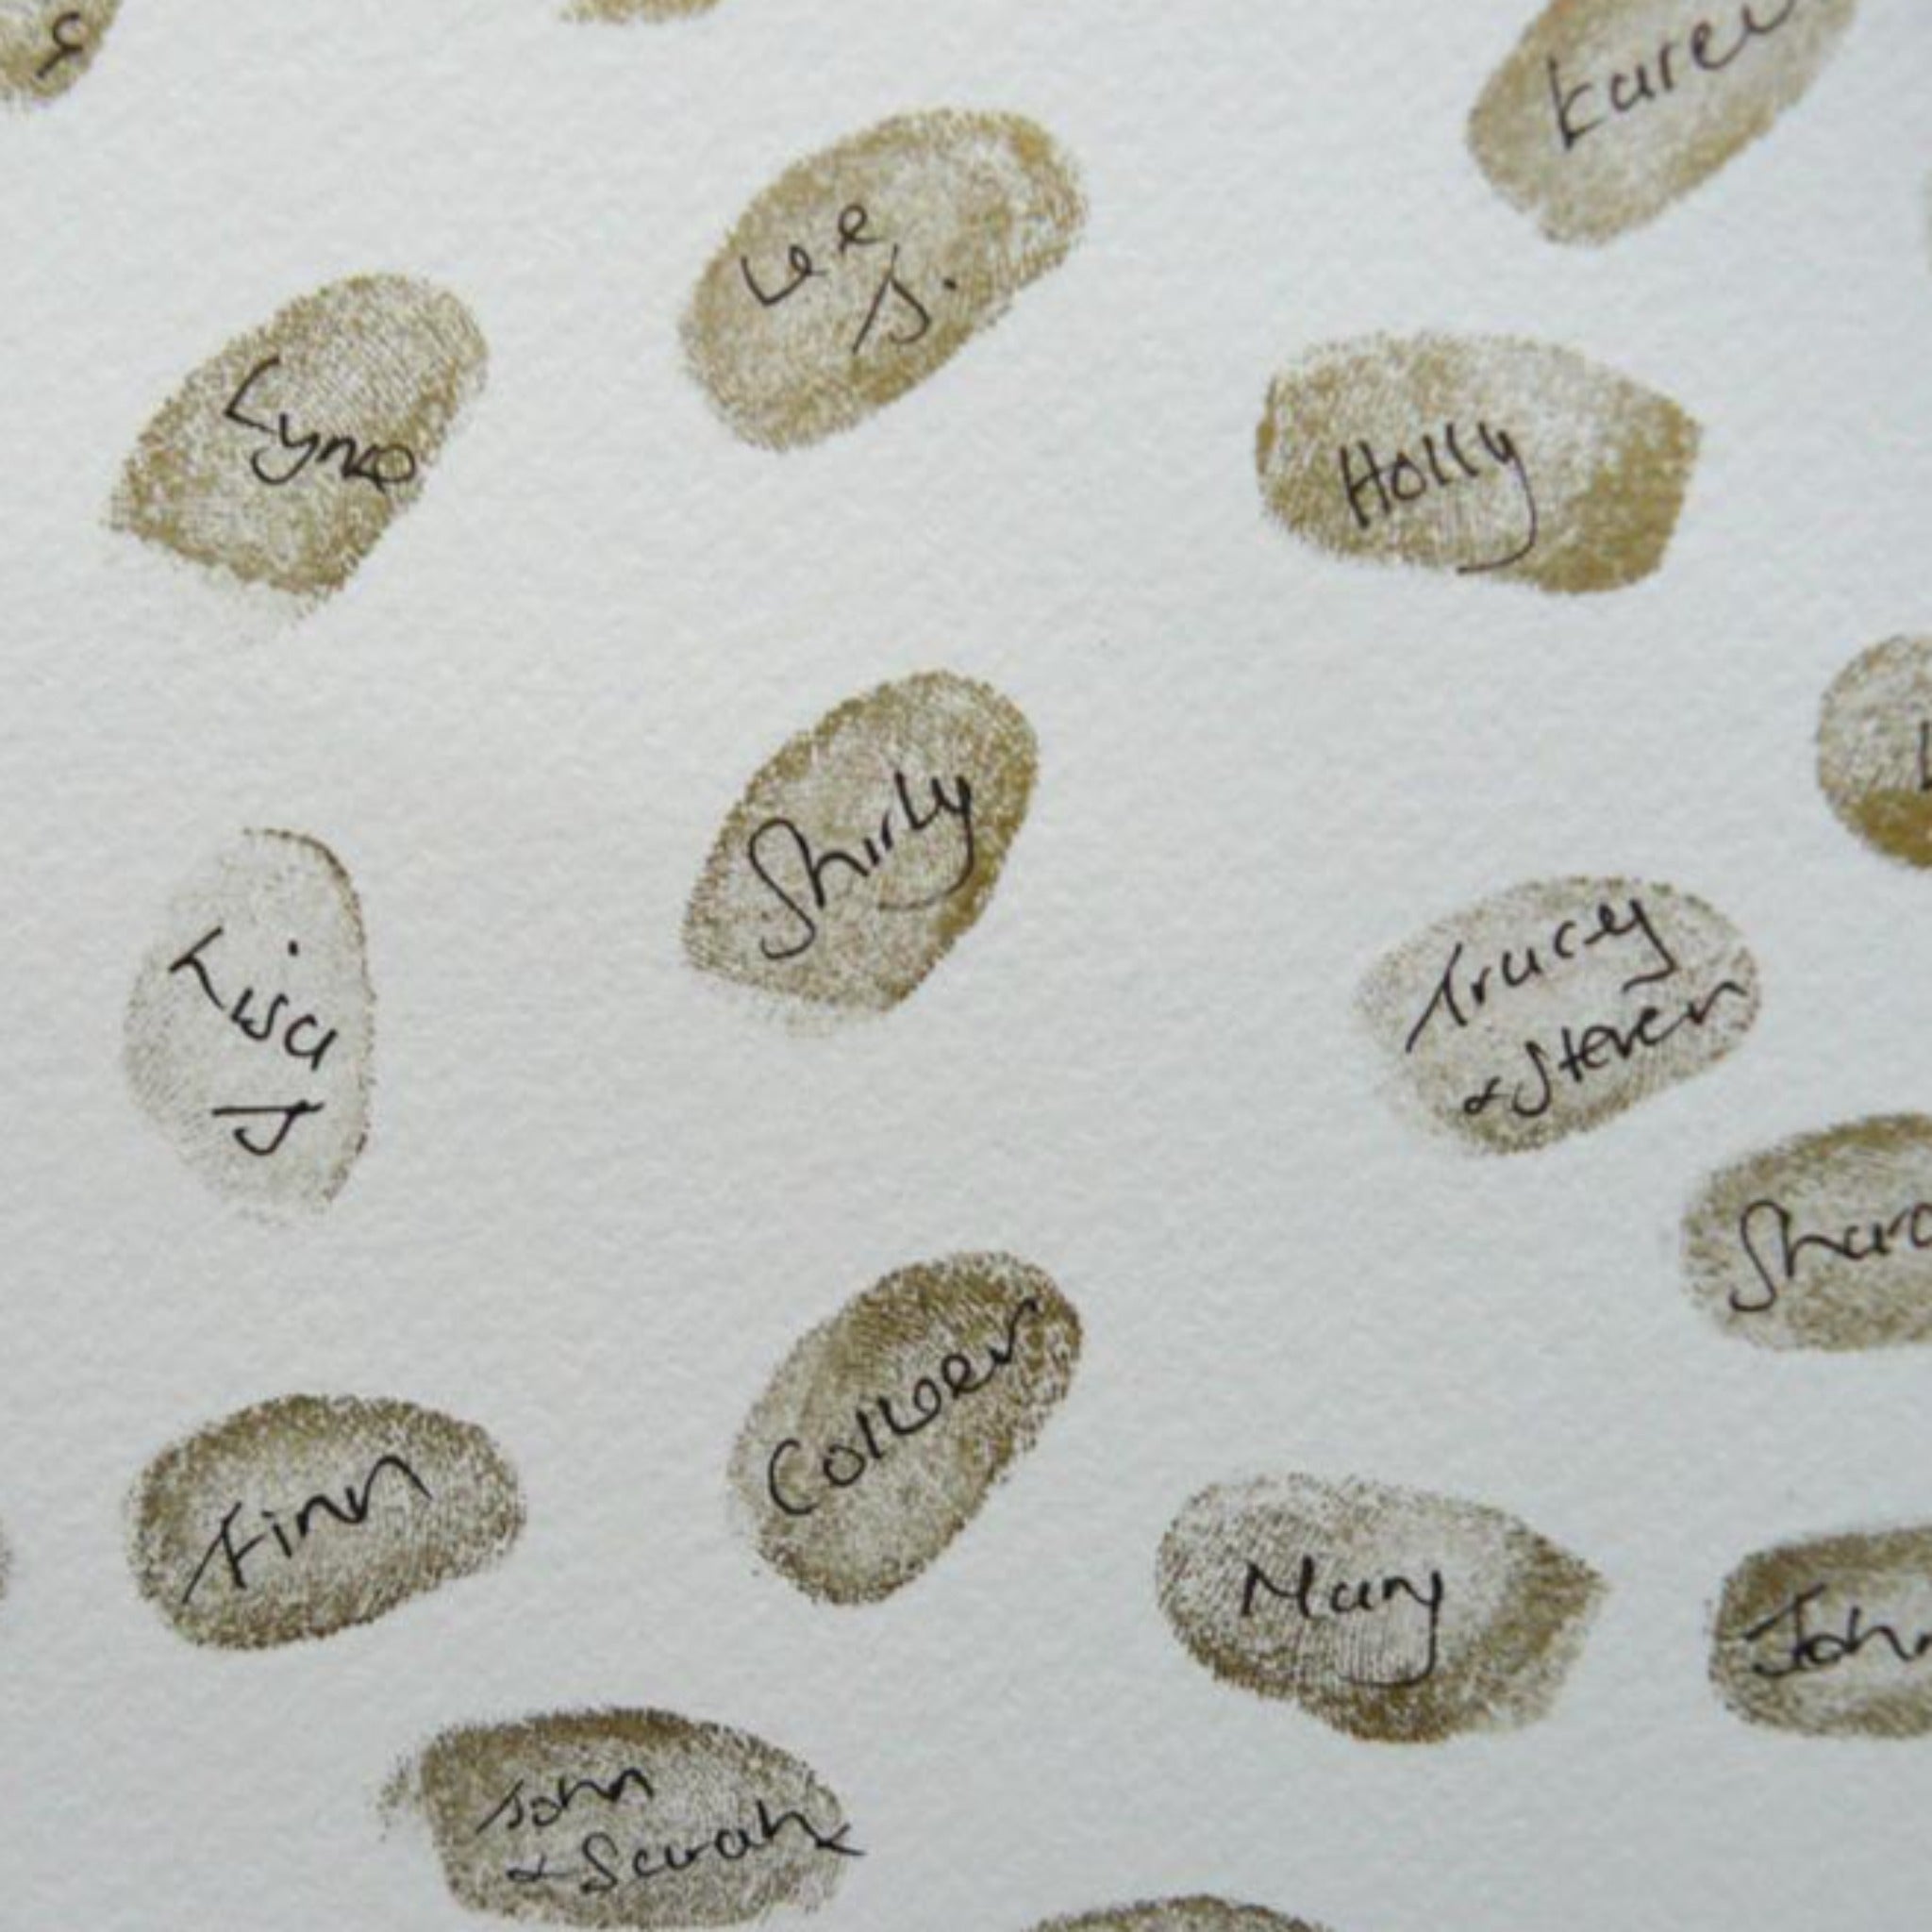 Karen
Lee
J.
Lynne
Holly
Shirly
Lisa
J
Tracey
& Steven
Colleen
Finn
Mary
John
John
& Sarah